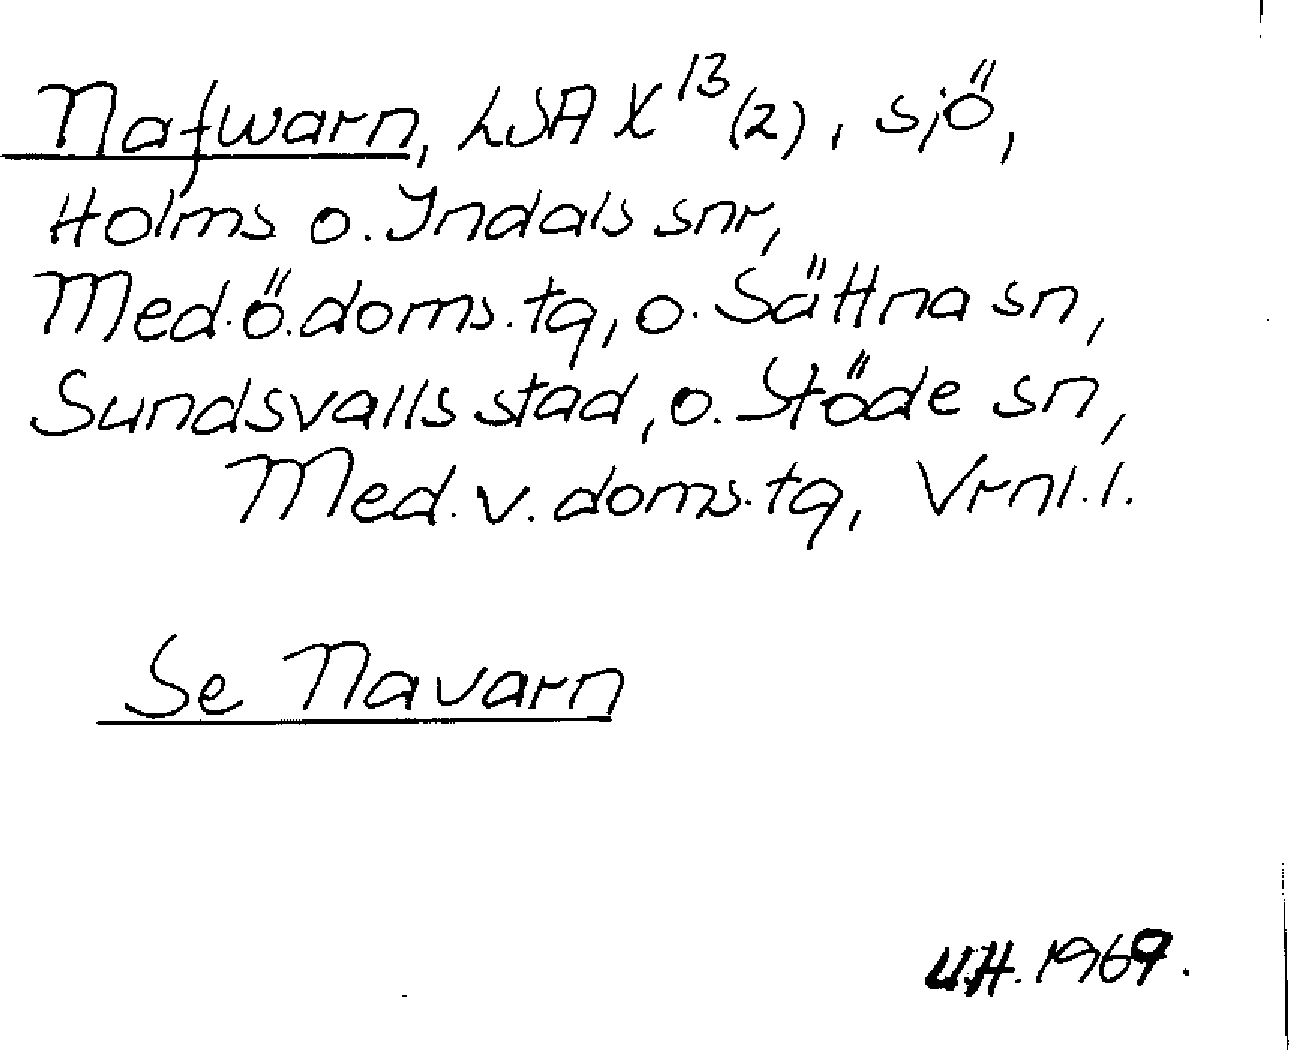 Nafwarn, LSA X¹³ (2), sjö,
Holms o. Indals snr,
Med.ö.doms.tg, o. Sättna sn,
Sundsvalls stad, o. Stöde sn,
Med.v.doms.tg, Vrnl.l.
Se Navarn
U.H. 1969.